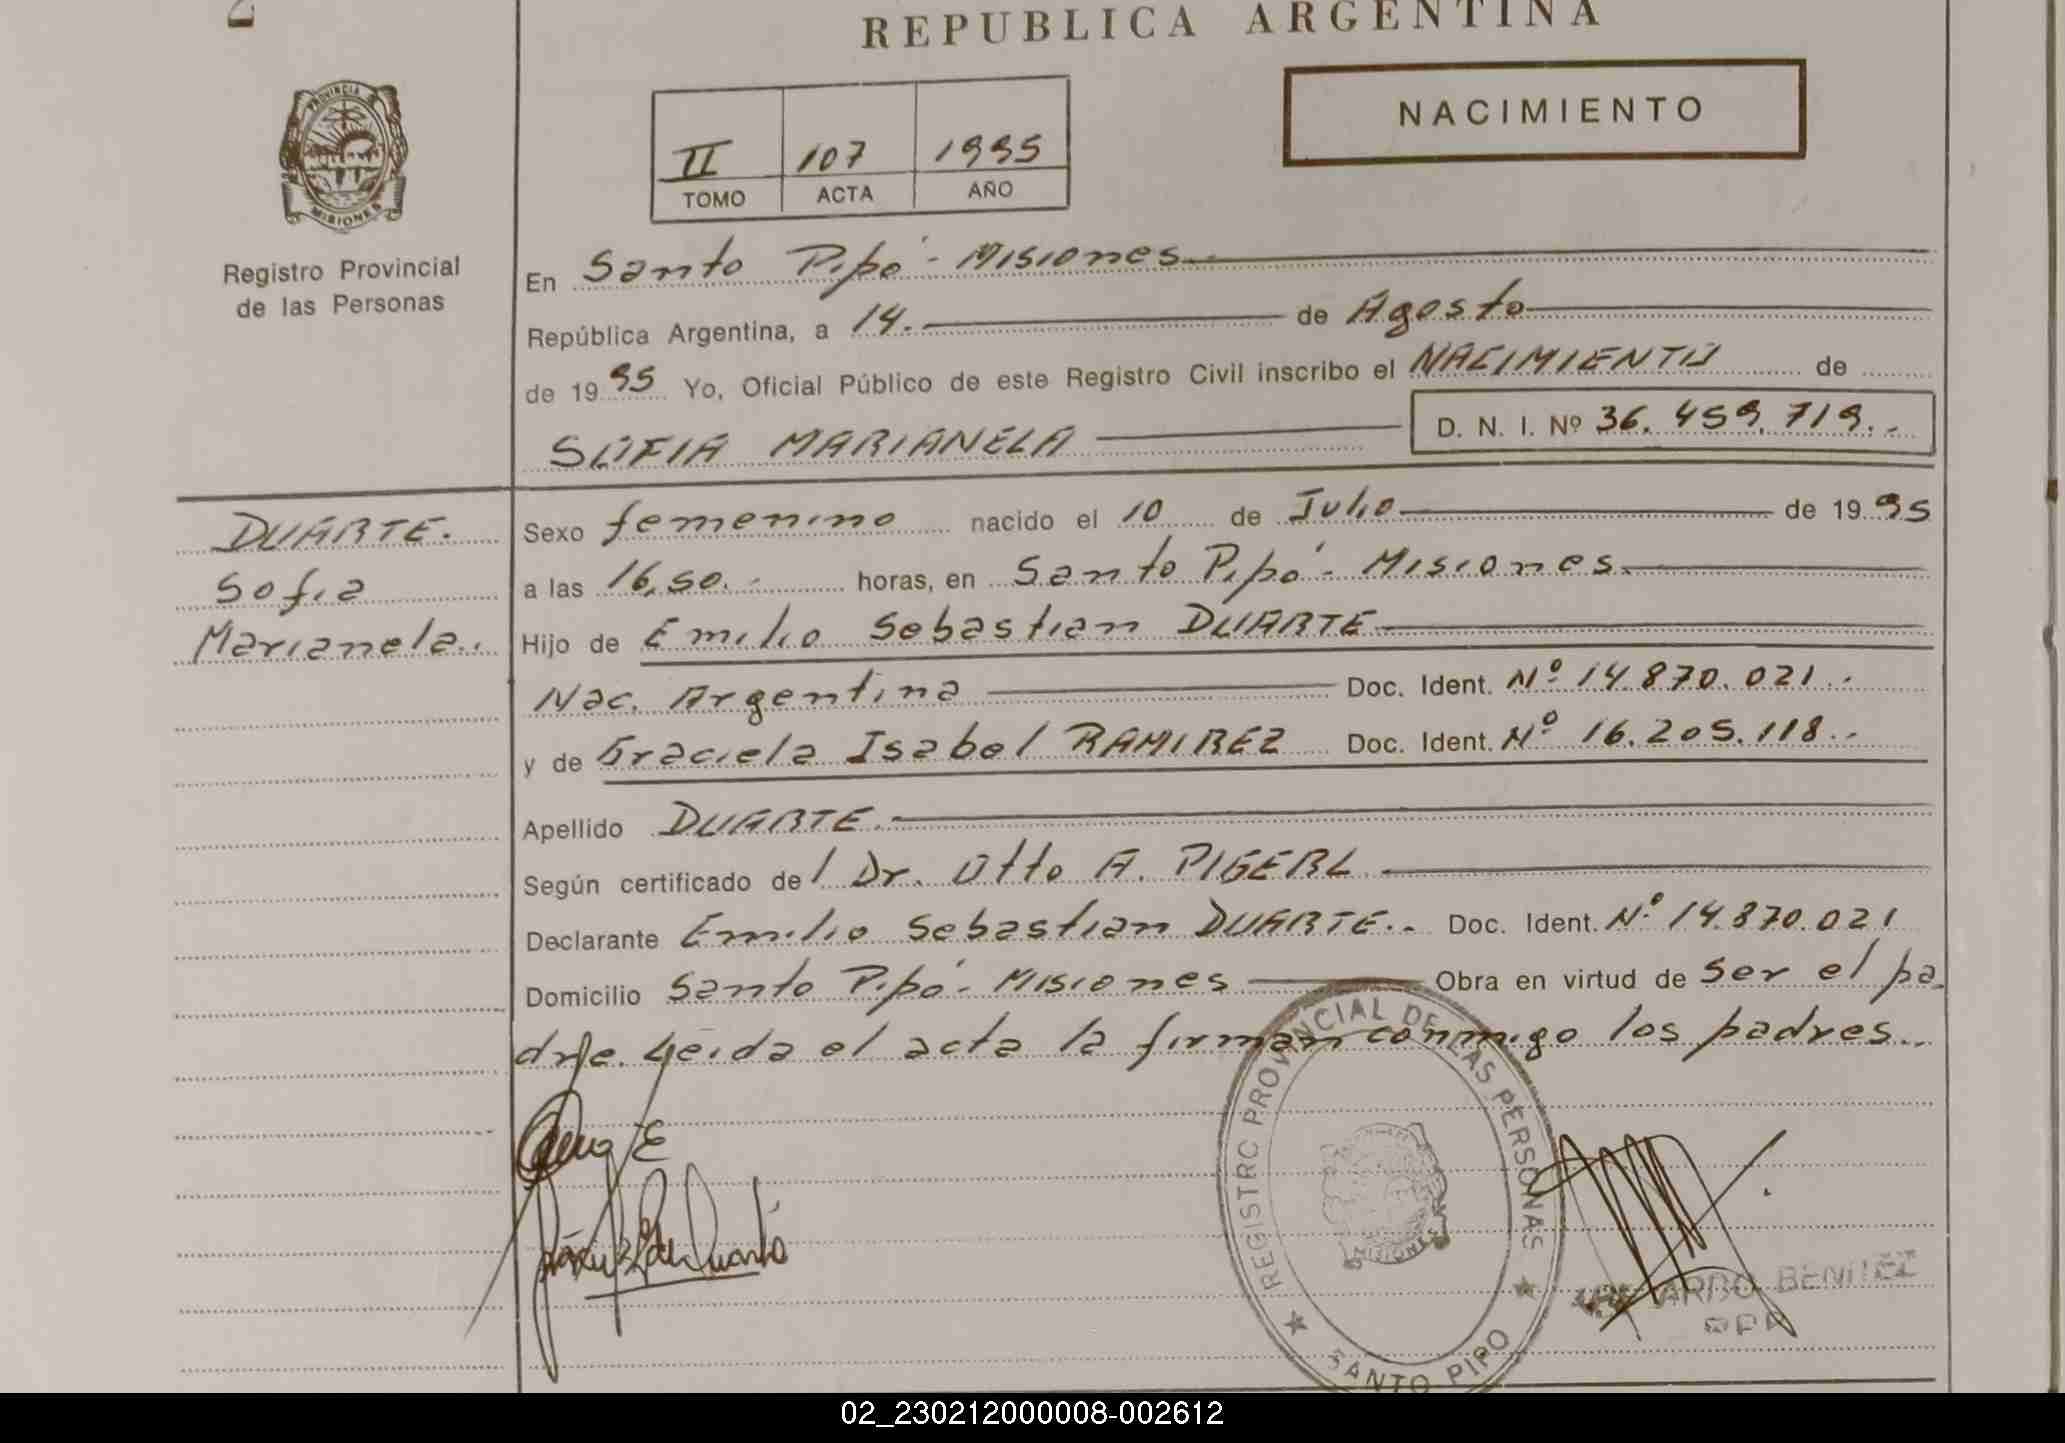 REPUBLICA ARGENTINA
PROVINCIA
MISIONES
Registro Provincial
de las Personas
II 107 1995
TOMO ACTA AÑO
NACIMIENTO
En Santo Pipó - Misiones
República Argentina, a 14. de Agosto
de 19 95 Yo, Oficial Público de este Registro Civil inscribo el NACIMIENTO de
SOFIA MARIANELA D. N. I. Nº 36.459.719..
DUARTE.
Sofia
Marianela..
Sexo femenino nacido el 10 de Julio de 19 95
a las 16,50.- horas, en Santo Pipó - Misiones.
Hijo de Emilio Sebastian DUARTE
Nac. Argentina Doc. Ident. Nº 14.870.021..
y de Graciela Isabel RAMIREZ Doc. Ident. Nº 16.205.118..
Apellido DUARTE.
Según certificado del Dr. Otto A. PIGERL
Declarante Emilio Sebastian DUARTE.. Doc. Ident. Nº 14.870.021
Domicilio Santo Pipó - Misiones Obra en virtud de ser el pa
dre. Leida el acta la firman conmigo los padres..
REGISTRO PROVINCIAL DE LAS PERSONAS
MISIONES
SANTO PIPO
BENITEZ
02_230212000008-002612